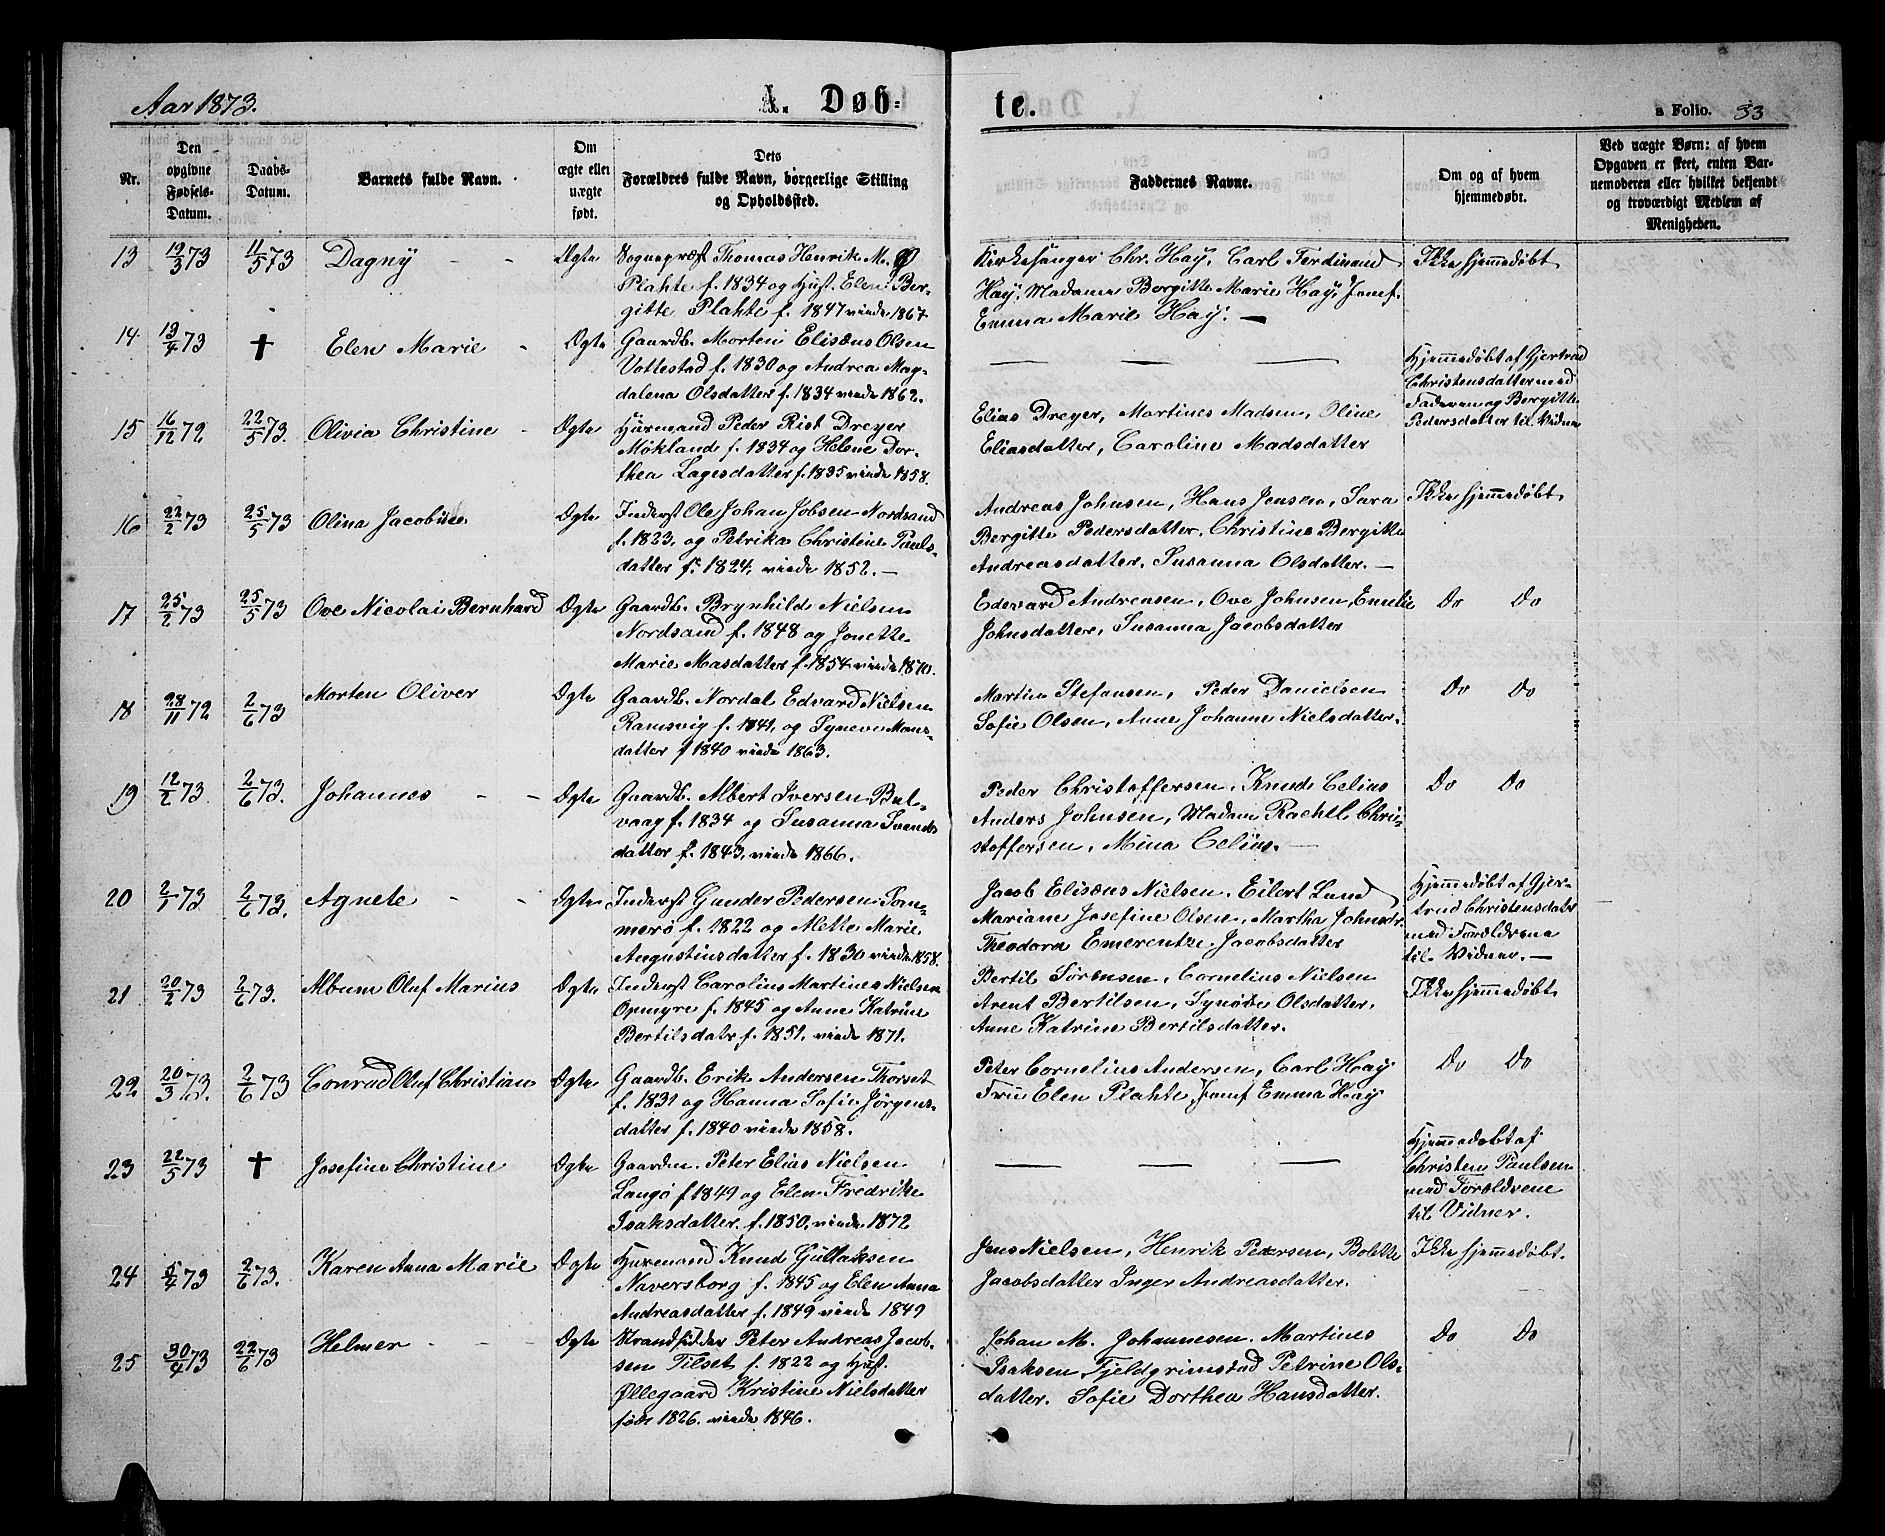 Aar 1873.
A. Døb=
te.
a Folio. 33
Nr.
Den opgivne Fødsels-Datum.
Daabs-Datum.
Barnets fulde Navn.
Om ægte eller uægte født.
Dets Forældres fulde Navn, borgerlige Stilling og Opholdssted.
Faddernes Navne.
Om og af hvem hjemmedøbt.
Ved uægte Børn: af hvem Opgaven er skeet, enten Barnemoderen eller hvilket bekjendt og troværdigt Medlem af Menigheden.
13 12/3 73 11/5 73 Dagny - - Ægte
Sognepræst Thomas Henrik M.
Plahte f. 1834 og Hust. Elen Ber-
gitte Plahte f. 1847 viede 1867
Kirkesanger Chr. Hay, Carl Ferdinand
Hay, Madame Bergitte Marie Hay, Jomf.
Emma Marie Hay. —
Ikke hjemmedøbt
14 13/4 73 † Elen Marie - Ægte
Gaardb. Morten Elisæus Olsen
Vottestad f. 1830 og Andrea Mag-
dalena Olsdatter f. 1834 viede 1862.
— — —
Hjemmedøbt af Gjertrud
Christensdatter med
Faderen og Bergitte
Pedersdatter til Vidne
15 16/12 72 22/5 73. Olivia Christine - Ægte
Huusmand Peder Rist Dreyer
Mökland f. 1834 og Helene Dor-
thea Lagesdatter f. 1835 viede 1858.
Elias Dreyer, Martines Madsen, Oline
Eliasdatter, Caroline Madsdatter
16 22/2 73 25/5 73 Olina Jacobine Ægte
Inderst Ole Johan Jobsen Nordsand
f. 1823, og Petrika Christine Pauls-
datter f. 1824, viede 1852. —
Andreas Johnsen, Hans Jensen, Sara
Bergitte Pedersdatter, Christine Bergitte
Andreasdatter, Susanna Olsdatter. —
Ikke hjemmedøbt
17 25/2 73 25/5 73 Ove Nicolai Bernhard Ægte
Gaardb. Brynhild Nielsen
Nordsand f. 1848 og Jonette
Marie Masdatter f. 1854 viede 1870.
Edevard Andreasen, Ove Johnsen, Emelie
Johnsdatter, Susanna Jacobsdatter
Do Do
18 28/11 72 2/6 73 Morten Oliver Ægte
Gaardb. Nordal Edvard Nielsen
Ramsvig f. 1841, og Syneve Mons-
datter f 1840 viede 1863.
Martin Stefansen, Peder Danielsen
Sofie Olsen, Anne Johanne Nielsdatter.
Do Do
19 12/2 73. 2/6 73. Johannes - - Ægte
Gaardb. Albert Iversen Bul-
vaag f. 1834 og Susanna Svends-
datter f. 1843, viede 1866.
Peder Christoffersen, Knud Celius
Anders Johnsen, Madam Rachel Chri-
stoffersen, Mina Celius. —
Do Do
20 2/1 73 2/6 73. Agnete - - Ægte
Inderst Gunder Pedersen Som-
merø f. 1822 og Mette Marie
Augustinsdatter f. 1830 viede 1858.
Jacob Elisæus Nielsen, Eilert Lund
Mariane Josefine Olsen, Martha Johnsdr.
Theodora Emerentze Jacobsdatter
Hjemmedøbt af Gjer-
trud Christensdater
med Forældrene
til Vidner. —
21 20/2 73 2/6 73. Album Oluf Marius Ægte
Inderst Carolius Martines Nielsen
Opmyre f. 1845 og Anne Katrine
Bertilsdatr f. 1851, viede 1871.
Bertil Sörensen, Cornelius Nielsen
Arent Bertilsen, Synöve Olsdatter,
Anne Katrine Bertilsdatter.
Ikke hjemmedøbt
22 20/3 73. 2/6 73 Conrad Oluf Christian Ægte
Gaardb. Erik Andersen Thorset
f. 1831 og Hanna Sofie Jørgens-
datter f. 1840 viede 1858.
Peter Cornelius Andersen, Carl Hay
Fru Elen Plahte, Jomf Emma Hay
Do Do
23 22/5 73 † Josefine Christine Ægte
Gaardm. Peter Elias Nielsen
Langö f 1849 og Elen Fredrike
Isaksdatter f. 1850, viede 1872
— — —
Hjemmedøbt af
Christen Paulsen
med Forældrene
til Vidner.
24 5/4 73 2/6 73. Karen Anna Marie Ægte
Huusmand Knud Gullaksen
Naversborg f. 1845 og Elen Anna
Andreasdatter f. 1849 viede 1849
Jens Nielsen, Henrik Petersen, Bolette
Jacobsdatter Inger Andreasdatter.
Ikke hjemmedøbt.
25 30/4 73 22/6 73 Helmer - - Ægte
Strandsidder Peter Andreas Jacob-
sen Tilset f. 1822 og Hust.
Øllegaard Kristine Nielsdatter
föde 1826. viede 1846.
Johan M. Johannesen. Martines
Isaksen Fjeldgrimstad Petrine Ols-
datter. Sofie Dorthea Hansdatter.
Do Do